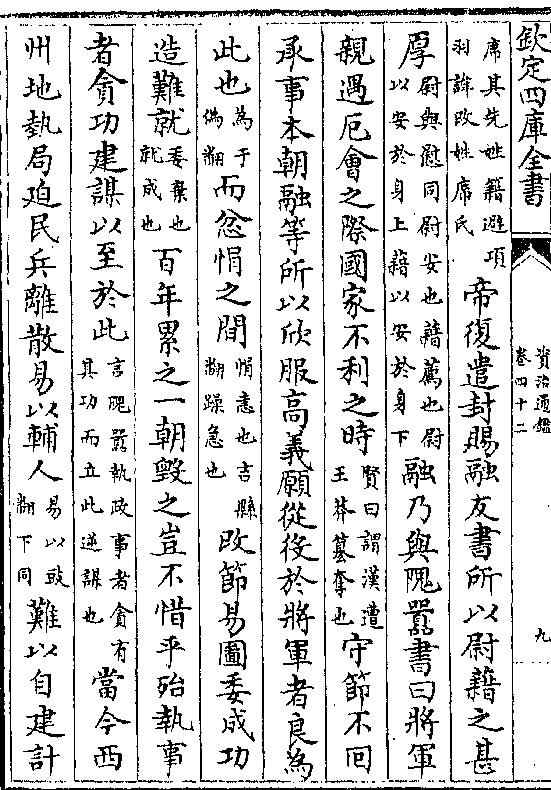 欽定四庫全書
資治通鑑
卷四十二
九
席其先姓籍避項
羽諱改姓席氏
帝復遣封賜融友書所以尉藉之甚
厚
尉與慰同尉安也藉薦也尉
以安於身上藉以安於身下
融乃與隗囂書曰將軍
親遇厄會之際國家不利之時
賢曰謂漢遭
王莽篡奪也
守節不回
承事本朝融等所以欣服高義願從役於將軍者良為
此也
為于
偽翻
而忿悁之間
悁恚也吉縣
翻躁急也
改節易圖委成功
造難就
委棄也
就成也
百年累之一朝毀之豈不惜乎殆執事
者貪功建謀以至於此
言隗囂執政事者貪有
其功而立此逆謀也
當今西
州地埶局迫民兵離散易以輔人
易以豉
翻下同
難以自建計